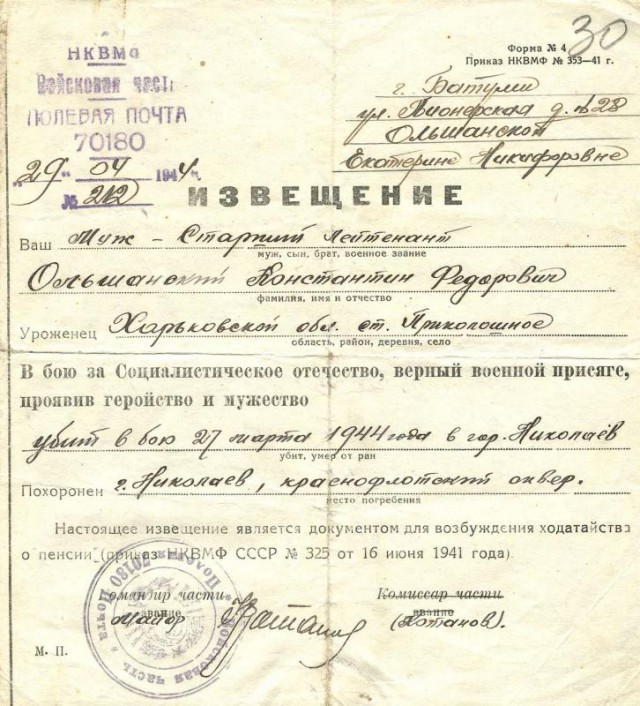 30
Форма № 4
Приказ НКВМФ № 353—41 г.
НКВМФ
Войсковая часть
ПОЛЕВАЯ ПОЧТА
70180
"29" 04 1944 г.
№ 212
г. Батуми
ул. Пионерская д. № 28
Ольшанской
Екатерине Никифоровне
ИЗВЕЩЕНИЕ
Ваш Муж – Старший Лейтенант
муж, сын, брат, военное звание
Ольшанский Константин Федорович
фамилия, имя и отчество
Уроженец Харьковской обл. ст. Приколошное
область, район, деревня, село
В бою за Социалистическое отечество, верный военной присяге,
проявив геройство и мужество
убит в бою 27 марта 1944 года в гор. Николаев
убит, умер от ран
Похоронен г. Николаев, краснофлотский сквер.
место погребения
Настоящее извещение является документом для возбуждения ходатайства
о пенсии (приказ НКВМФ СССР № 325 от 16 июня 1941 года).
Командир части
звание
майор
Комиссар части
звание
(Котанов).
М. П.
Войсковая часть • Полевая Почта 70180